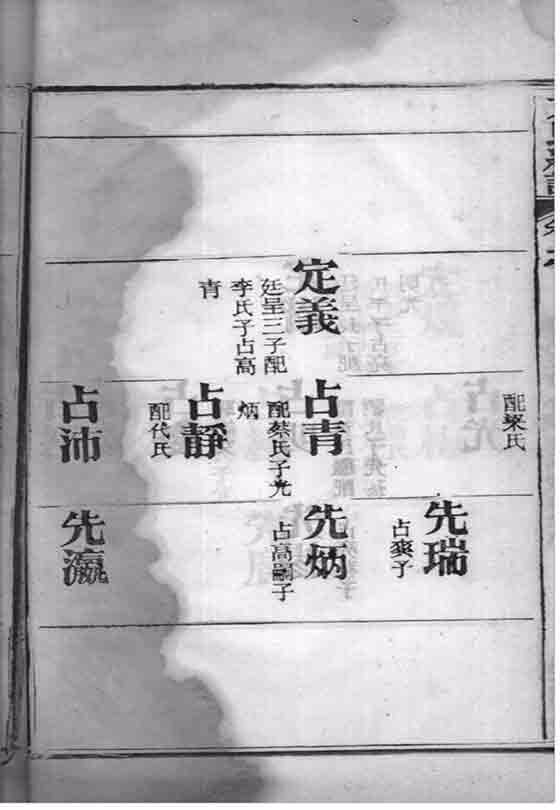 定義
廷呈三子配
李氏子占高
青
配梁氏
占青
配蔡氏子光
炳
占靜
配代氏
占沛
先瑞
占爽子
先炳
占高嗣子
先瀛